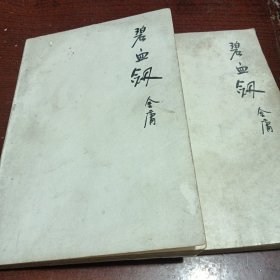 碧血劍
金庸
碧血劍
金庸